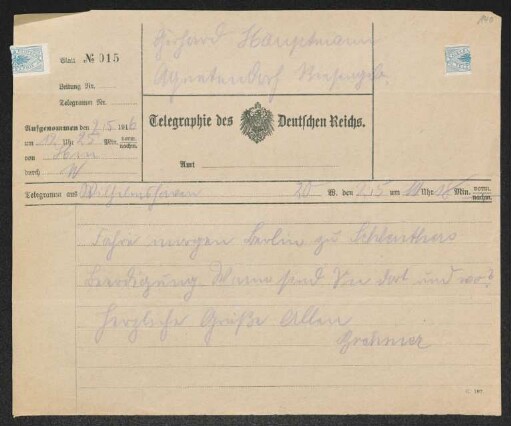 Gerhard Hauptmann
Agnetendorf Riesengeb.
Blatt № 015
Leitung Nr.
Telegramm Nr.
Aufgenommen den 2/5 1916
um Uhr 25 Min. vorm. nachm.
von
durch W
Telegraphie des Deutschen Reichs.
Amt
Telegramm aus Wilhelmshaven 20 W. den 2/5 um Uhr Min. vorm. nachm.
Fahre morgen Berlin zu
Beerdigung Wann sind Sie dort und wo?
Herzliche Grüße Allen
C. 187.